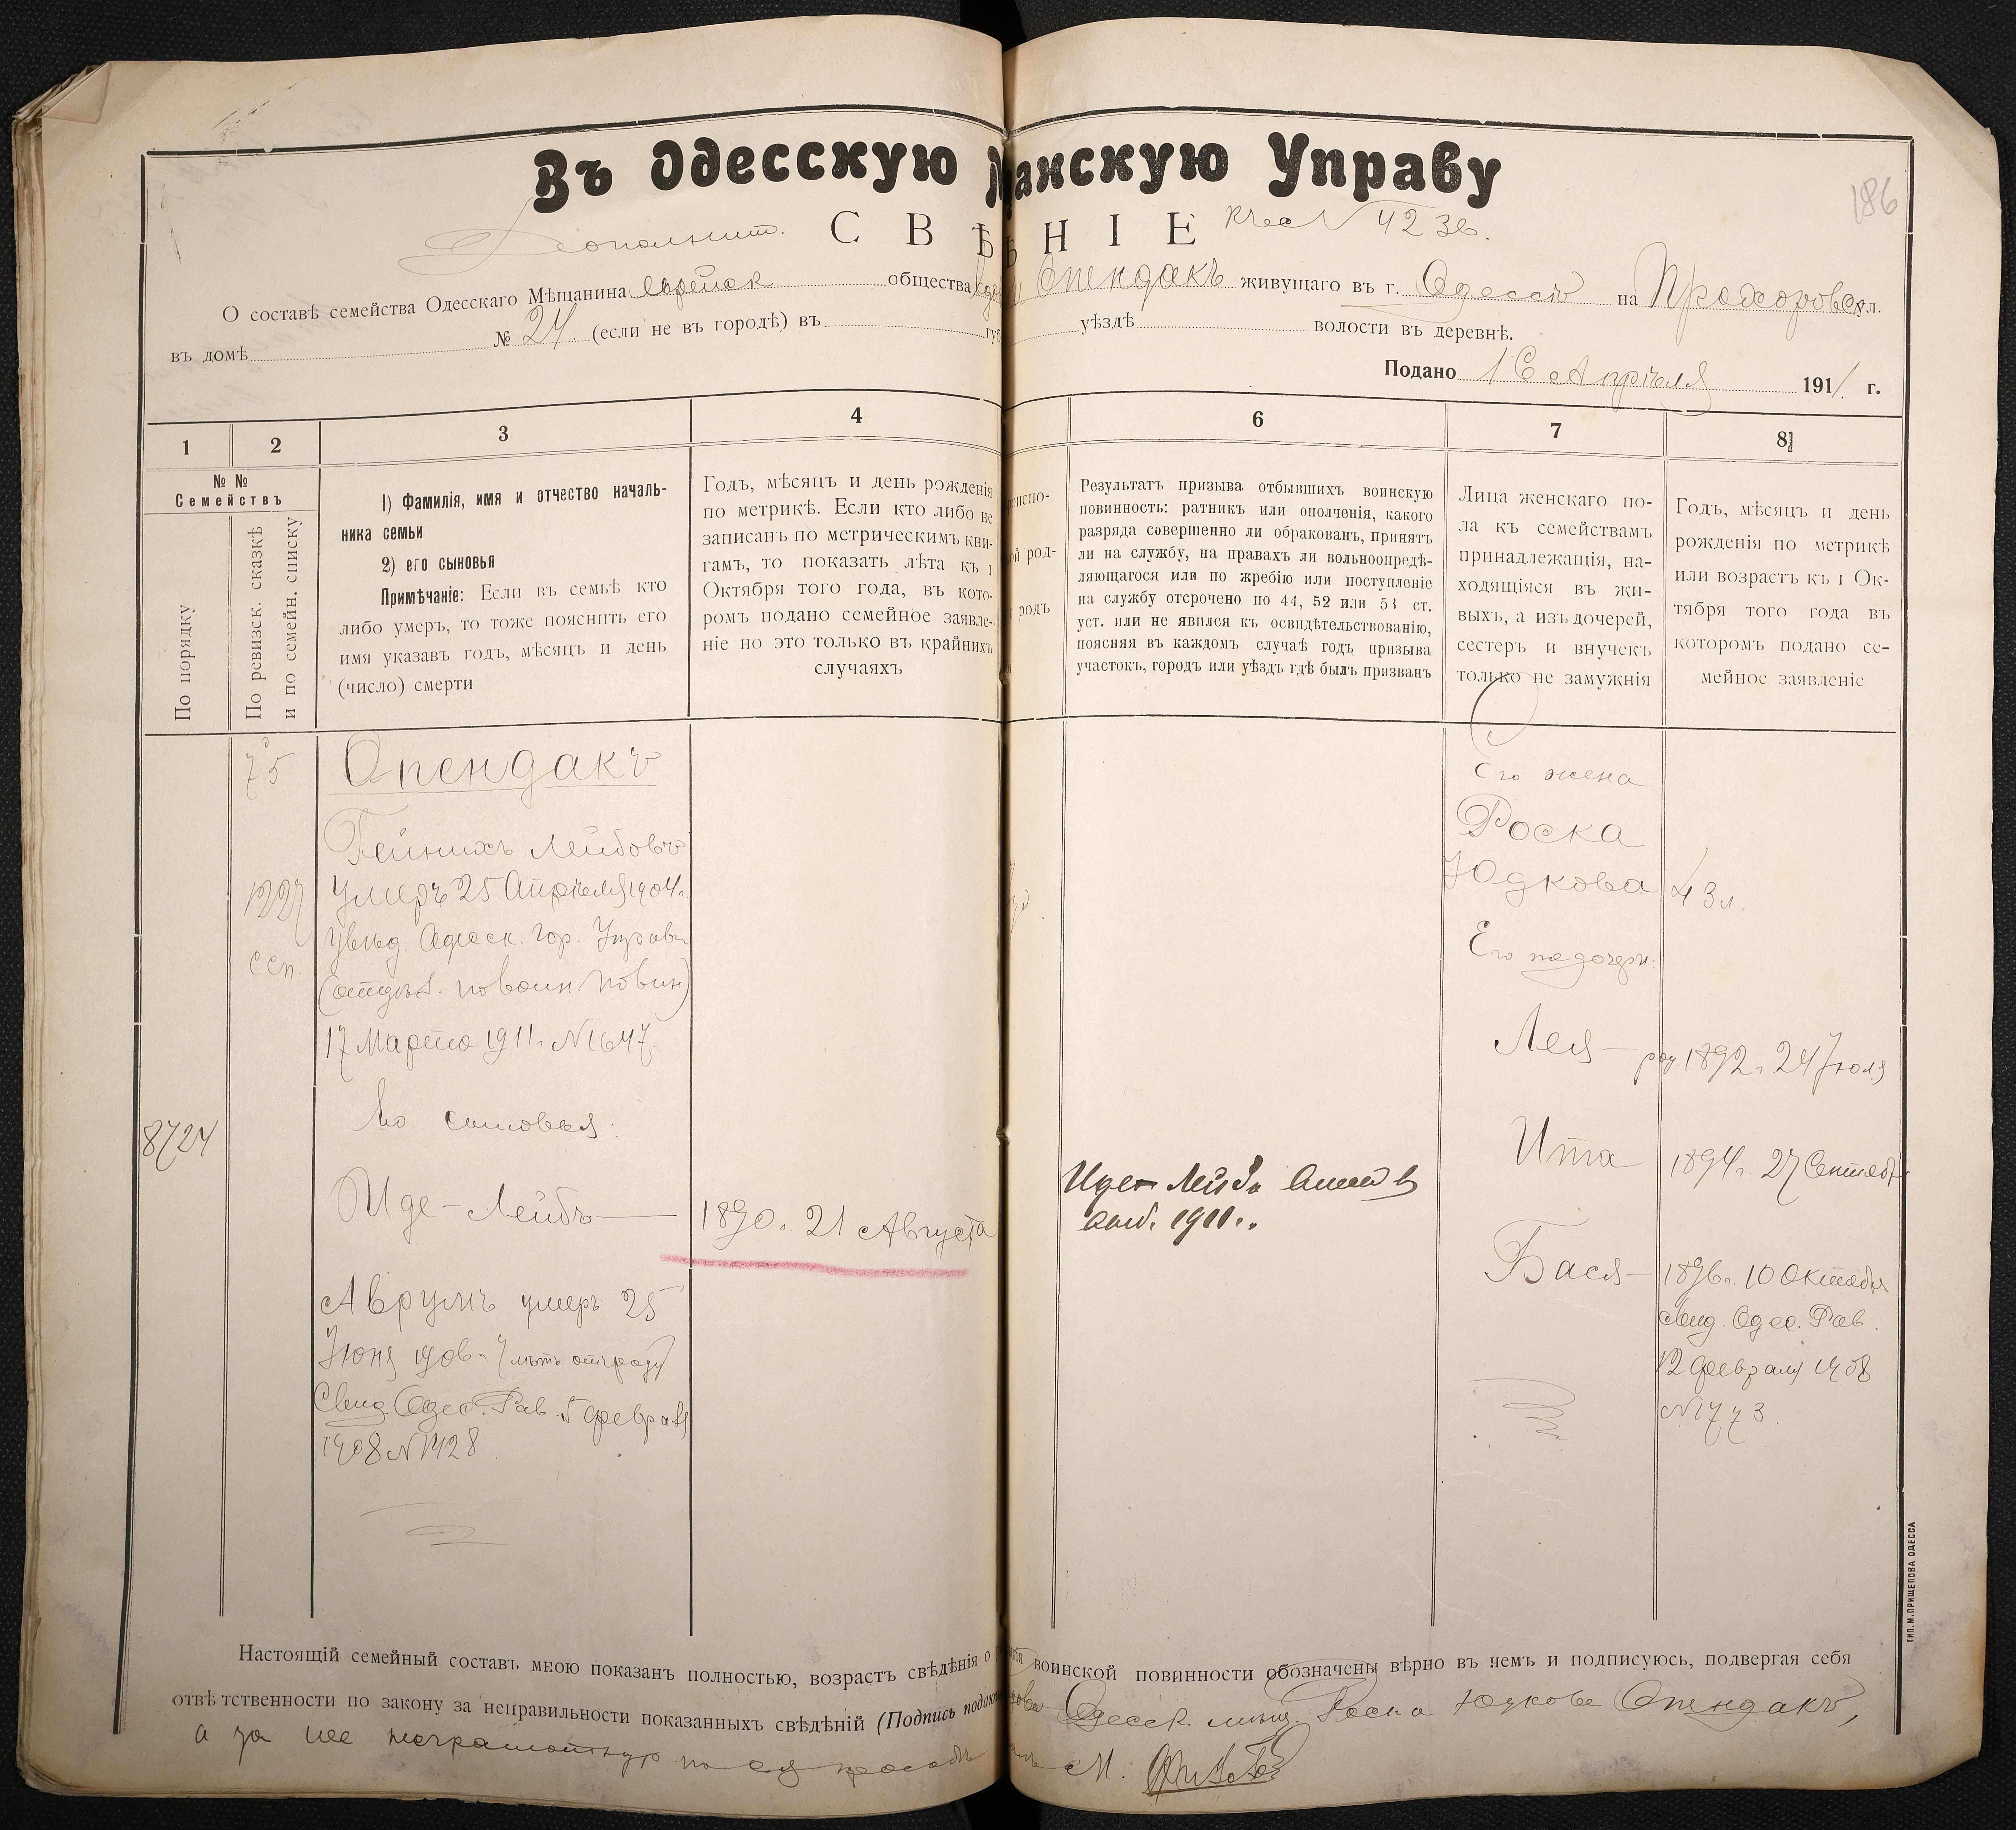 Въ Одесскую
анскую Управу
186
Дополнит.
С В Ѣ Н І Е
№ 4236.
О составѣ семейства Одесскаго Мѣщанина Еврейск общества
Опендакъ живущаго въ г. Одессѣ на Прохоровск ул.
въ домѣ № 24. (если не въ городѣ) въ губ
уѣздѣ волости въ деревнѣ.
Подано 16 Апрѣля 1911. г.
1
2
3
4
6
7
8
№ №
Семействъ
По порядку
По ревизск. сказкѣ
и по семейн. списку
1) Фамилія, имя и отчество началь-
ника семьи
2) его сыновья
Примѣчаніе: Если въ семьѣ кто
либо умеръ, то тоже пояснить его
имя указавъ годъ, мѣсяцъ и день
(число) смерти
Годъ, мѣсяцъ и день рожденія
по метрикѣ. Если кто либо не
записанъ по метрическимъ кни-
гамъ, то показать лѣта къ 1
Октября того года, въ кото-
ромъ подано семейное заявле-
ніе но это только въ крайнихъ
случаяхъ
оиспо-
род-
родъ
Результатъ призыва отбывшихъ воинскую
повинность: ратникъ или ополченія, какого
разряда совершенно ли обракованъ, принятъ
ли на службу, на правахъ ли вольноопредѣ-
ляющагося или по жребію или поступленіе
на службу отсрочено по 44, 52 или 53 ст.
уст. или не явился къ освидѣтельствованію,
поясняя въ каждомъ случаѣ годъ призыва
участокъ, городъ или уѣздъ гдѣ былъ призванъ
Лица женскаго по-
ла къ семействамъ
принадлежащія, на-
ходящіяся въ жи-
выхъ, а изъ дочерей,
сестеръ и внучекъ
только не замужнія
Годъ, мѣсяцъ и день
рожденія по метрикѣ
или возрастъ къ 1 Ок-
тября того года въ
которомъ подано се-
мейное заявленіе
75
Опендакъ
Гейнихъ Лейбовъ
1227
умеръ 25 Апрѣля 1904г.
увѣд. Одесск. Гор. Управы
сп.
(отдѣл. по воин. повин)
17 Марта 1911г. N1647.
8724
Его сыновья:
Иде-Лейбъ
1890г. 21 Августа
Аврумъ умеръ 25
Июня 1906г. (лѣтъ отъ роду)
Свид. Одес. Рав. 5 февраля
1908 N1428
Иде-Лейбъ
1911г.
Его жена
Роска
Юдкова
43 л.
Его дочери:
Лея—
род. 1892г. 24 Июля
Ита
1894г. 27 Сентяб
Бася—
1896г. 10 Октября
свид. Одес. Рав.
12 февраля 1908
N1773.
Настоящій семейный составъ мною показанъ полностью, возрастъ свѣдѣнія о
воинской повинности обозначены вѣрно въ немъ и подписуюсь, подвергая себя
отвѣтственности по закону за неправильности показанныхъ свѣдѣній (Подпись подаю
Одесск. мѣщ. Роска Юдкова Опендакъ,
а за нее неграмотную по ея просьбѣ
М.
ТИП. М. ПРИЩЕПОВА ОДЕССА